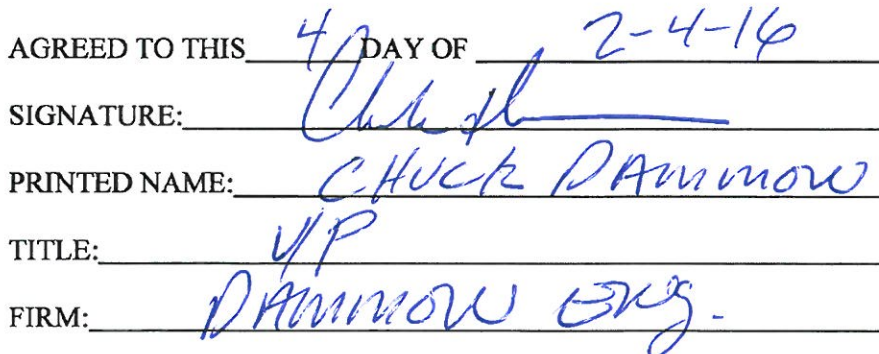 AGREED TO THIS 4 DAY OF 2-4-16
SIGNATURE:
PRINTED NAME: CHUCK DAMMON
TITLE: V/P
FIRM: DAMMON ENG.